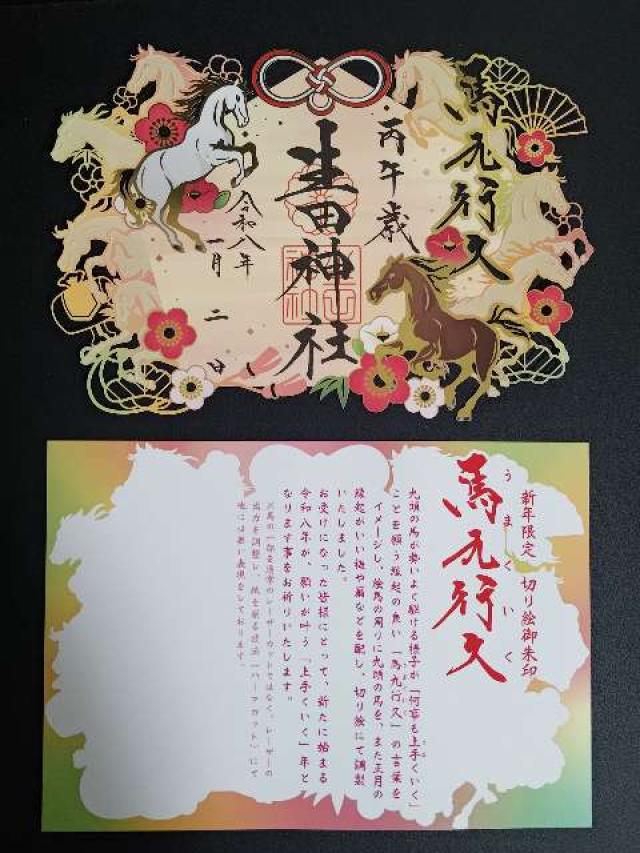 馬九行久
丙午歳
生田神社
令和八年
一月二日
新年限定 切り絵御朱印
うまくいく
馬九行久
九頭の馬が勢いよく駆ける様子が「何事も上手くいく」
ことを願う縁起の良い「馬九行久」の言葉を
イメージし、絵馬の周りに九頭の馬を、また正月の
縁起がいい梅や扇などを配し、切り絵にて調製
いたしました。
お受けになった皆様にとって、新たに始まる
令和八年が、願いが叶う「上手くいく」年と
なります事をお祈りいたします。
※馬の一部を通常のレーザーカットではなく、レーザーの
出力を調整し、紙を削る技法「ハーフカット」にて
他には無い表現をしております。